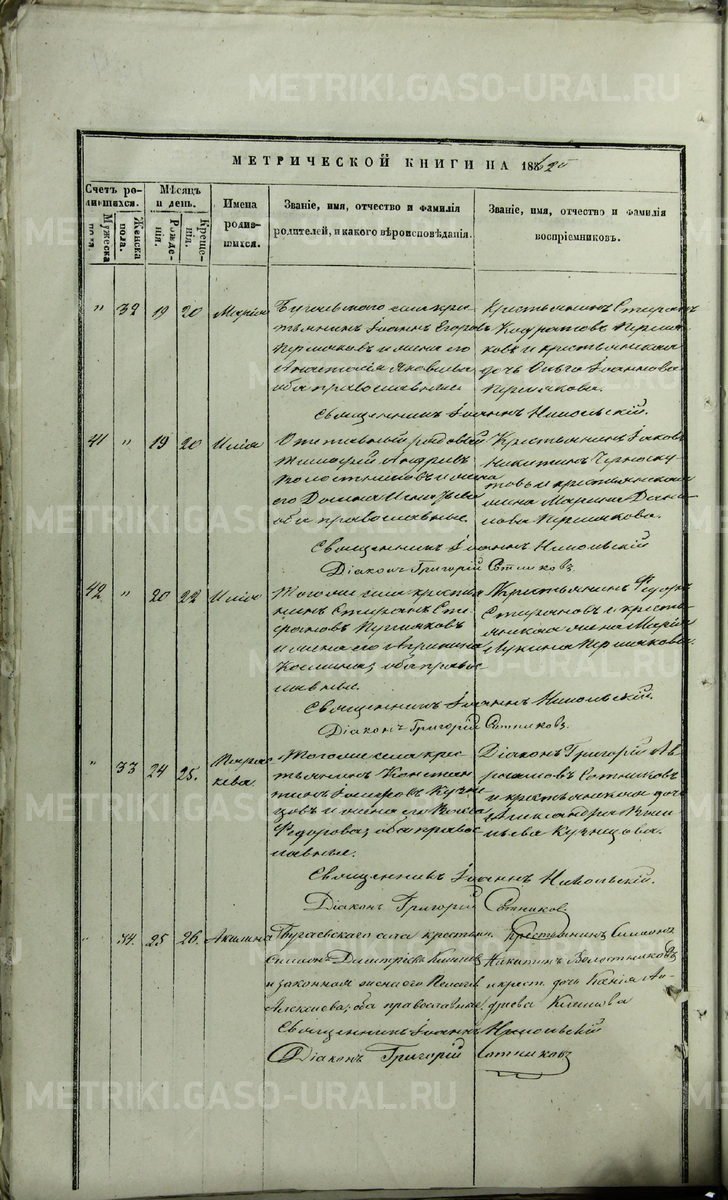 METRIKI.GASO-URAL.RU
МЕТРИЧЕСКОЙ КНИГИ НА 1862й
Счетъ родившихся.
Мужеска пола.
Женска пола.
Мѣсяцъ и день.
Рожденія.
Крещенія.
Имена родившихся.
Званіе, имя, отчество и фамилія родителей, и какого вѣроисповѣданія.
Званіе, имя, отчество и фамилія воспріемниковъ.
" 32 19 20 Марія
Бугаевскаго села кре
стьянинъ Іоаннъ Егоровъ
Пермяковъ и жена его
Анастасія Яковлева
оба православные.
Крестьянинъ Стефанъ
Пермяковъ и крестьянская
дочь Ольга Іоаннова
Пермякова.
Священникъ Іоаннъ Никольскій.
41 " 19 20 Илія
рядовой
Тимофей Андреевъ
Волостниковъ и жена
его Домна Игнатьева
оба православные.
Крестьянинъ Іаковъ
Никитинъ Черноску
товъ и крестьянская
жена Марина Дани
лова Пермякова.
Священникъ Іоаннъ Никольскій
Діаконъ Григорій Сотниковъ
42 " 20 22 Илія
Тогоже села крестья
нинъ Стефанъ Сте
фановъ Пермяковъ
и жена его Агрипина
Космина; оба правос
лавные.
Крестьянинъ Ѳедоръ
Стефановъ и кресть
янская жена Марія
Лукина Пермякова.
Священникъ Іоаннъ Никольскій.
Діаконъ Григорій Сотниковъ.
" 33 24 25. Параскева.
Тогоже села крес
тьянинъ Констан
тинъ Іосифовъ Кузне
цовъ и жена его Ѳекла
Ѳедорова; оба правос
лавные.
Діаконъ Григорій Ав
раамовъ Сотниковъ
и крестьянская дочь
Александра Васи
льева Кузнецова.
Священникъ Іоаннъ Никольскій.
Діаконъ Григорій Сотниковъ
" 34. 25 26. Акилина
Бугаевскаго села крестьян.
Симеонъ Димитріевъ
и законная жена его Пелагея
Алексіева; оба православные.
Крестьянинъ Симеонъ
Никитинъ Волостниковъ
и крест. дочь Ксенія Ан-
дреева
Священникъ Іоаннъ Никольскій
Діаконъ Григорій Сотниковъ